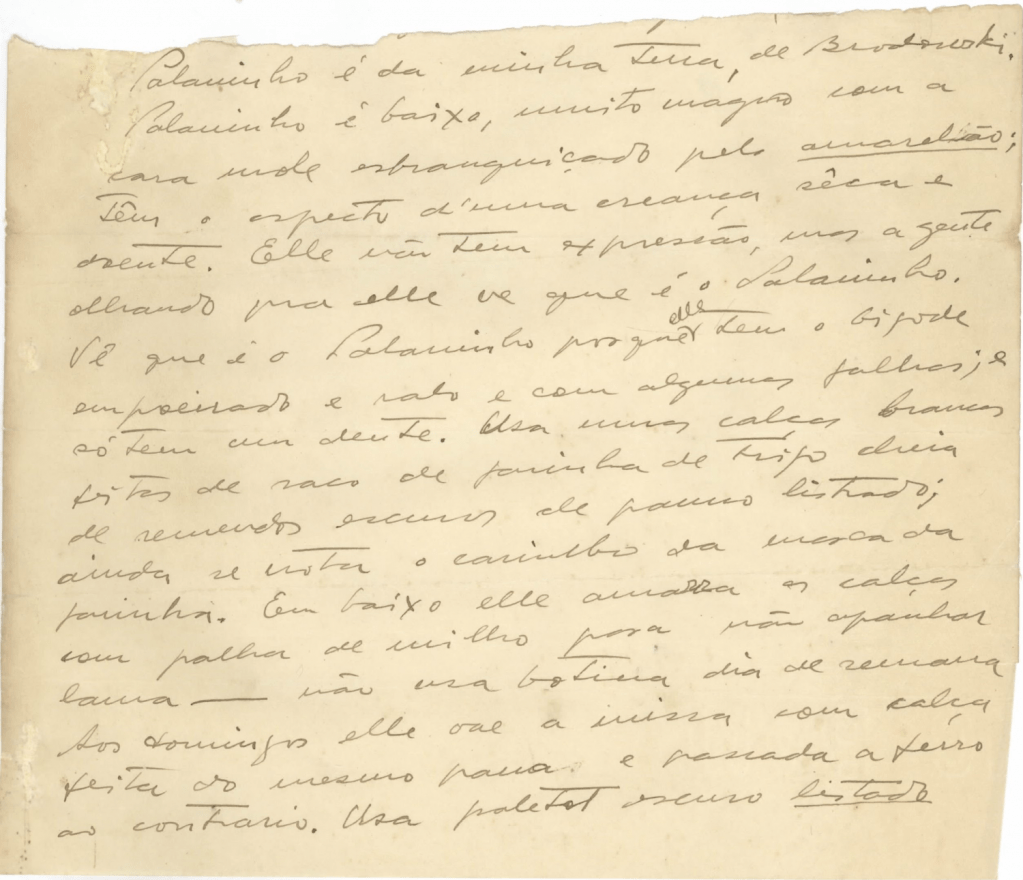 Palaninho é da minha terra, de Brodowski.
Palaninho é baixo, muito magro com a
cara mole esbranquiçado pelo amarelão;
têm o aspecto d'uma creança sêca e
doente. Elle não tem expressão, mas a gente
olhando pra elle ve que é o Palaninho.
Vê que é o Palaninho porque elle tem o bigode
empoeirado e ralo e com algumas falhas; e
só tem um dente. Usa umas calças brancas
feitas de saco de farinha de trigo cheia
de remendos escuros de panno listrado;
ainda se nota o carimbo da marca da
farinha. Em baixo elle amarra as calças
com palha de milho para não apanhar
lama — não usa botina dia de semana
Aos domingos elle vae a missa com calça
feita do mesmo pano e passada a ferro
ao contrario. Usa paletot escuro listado